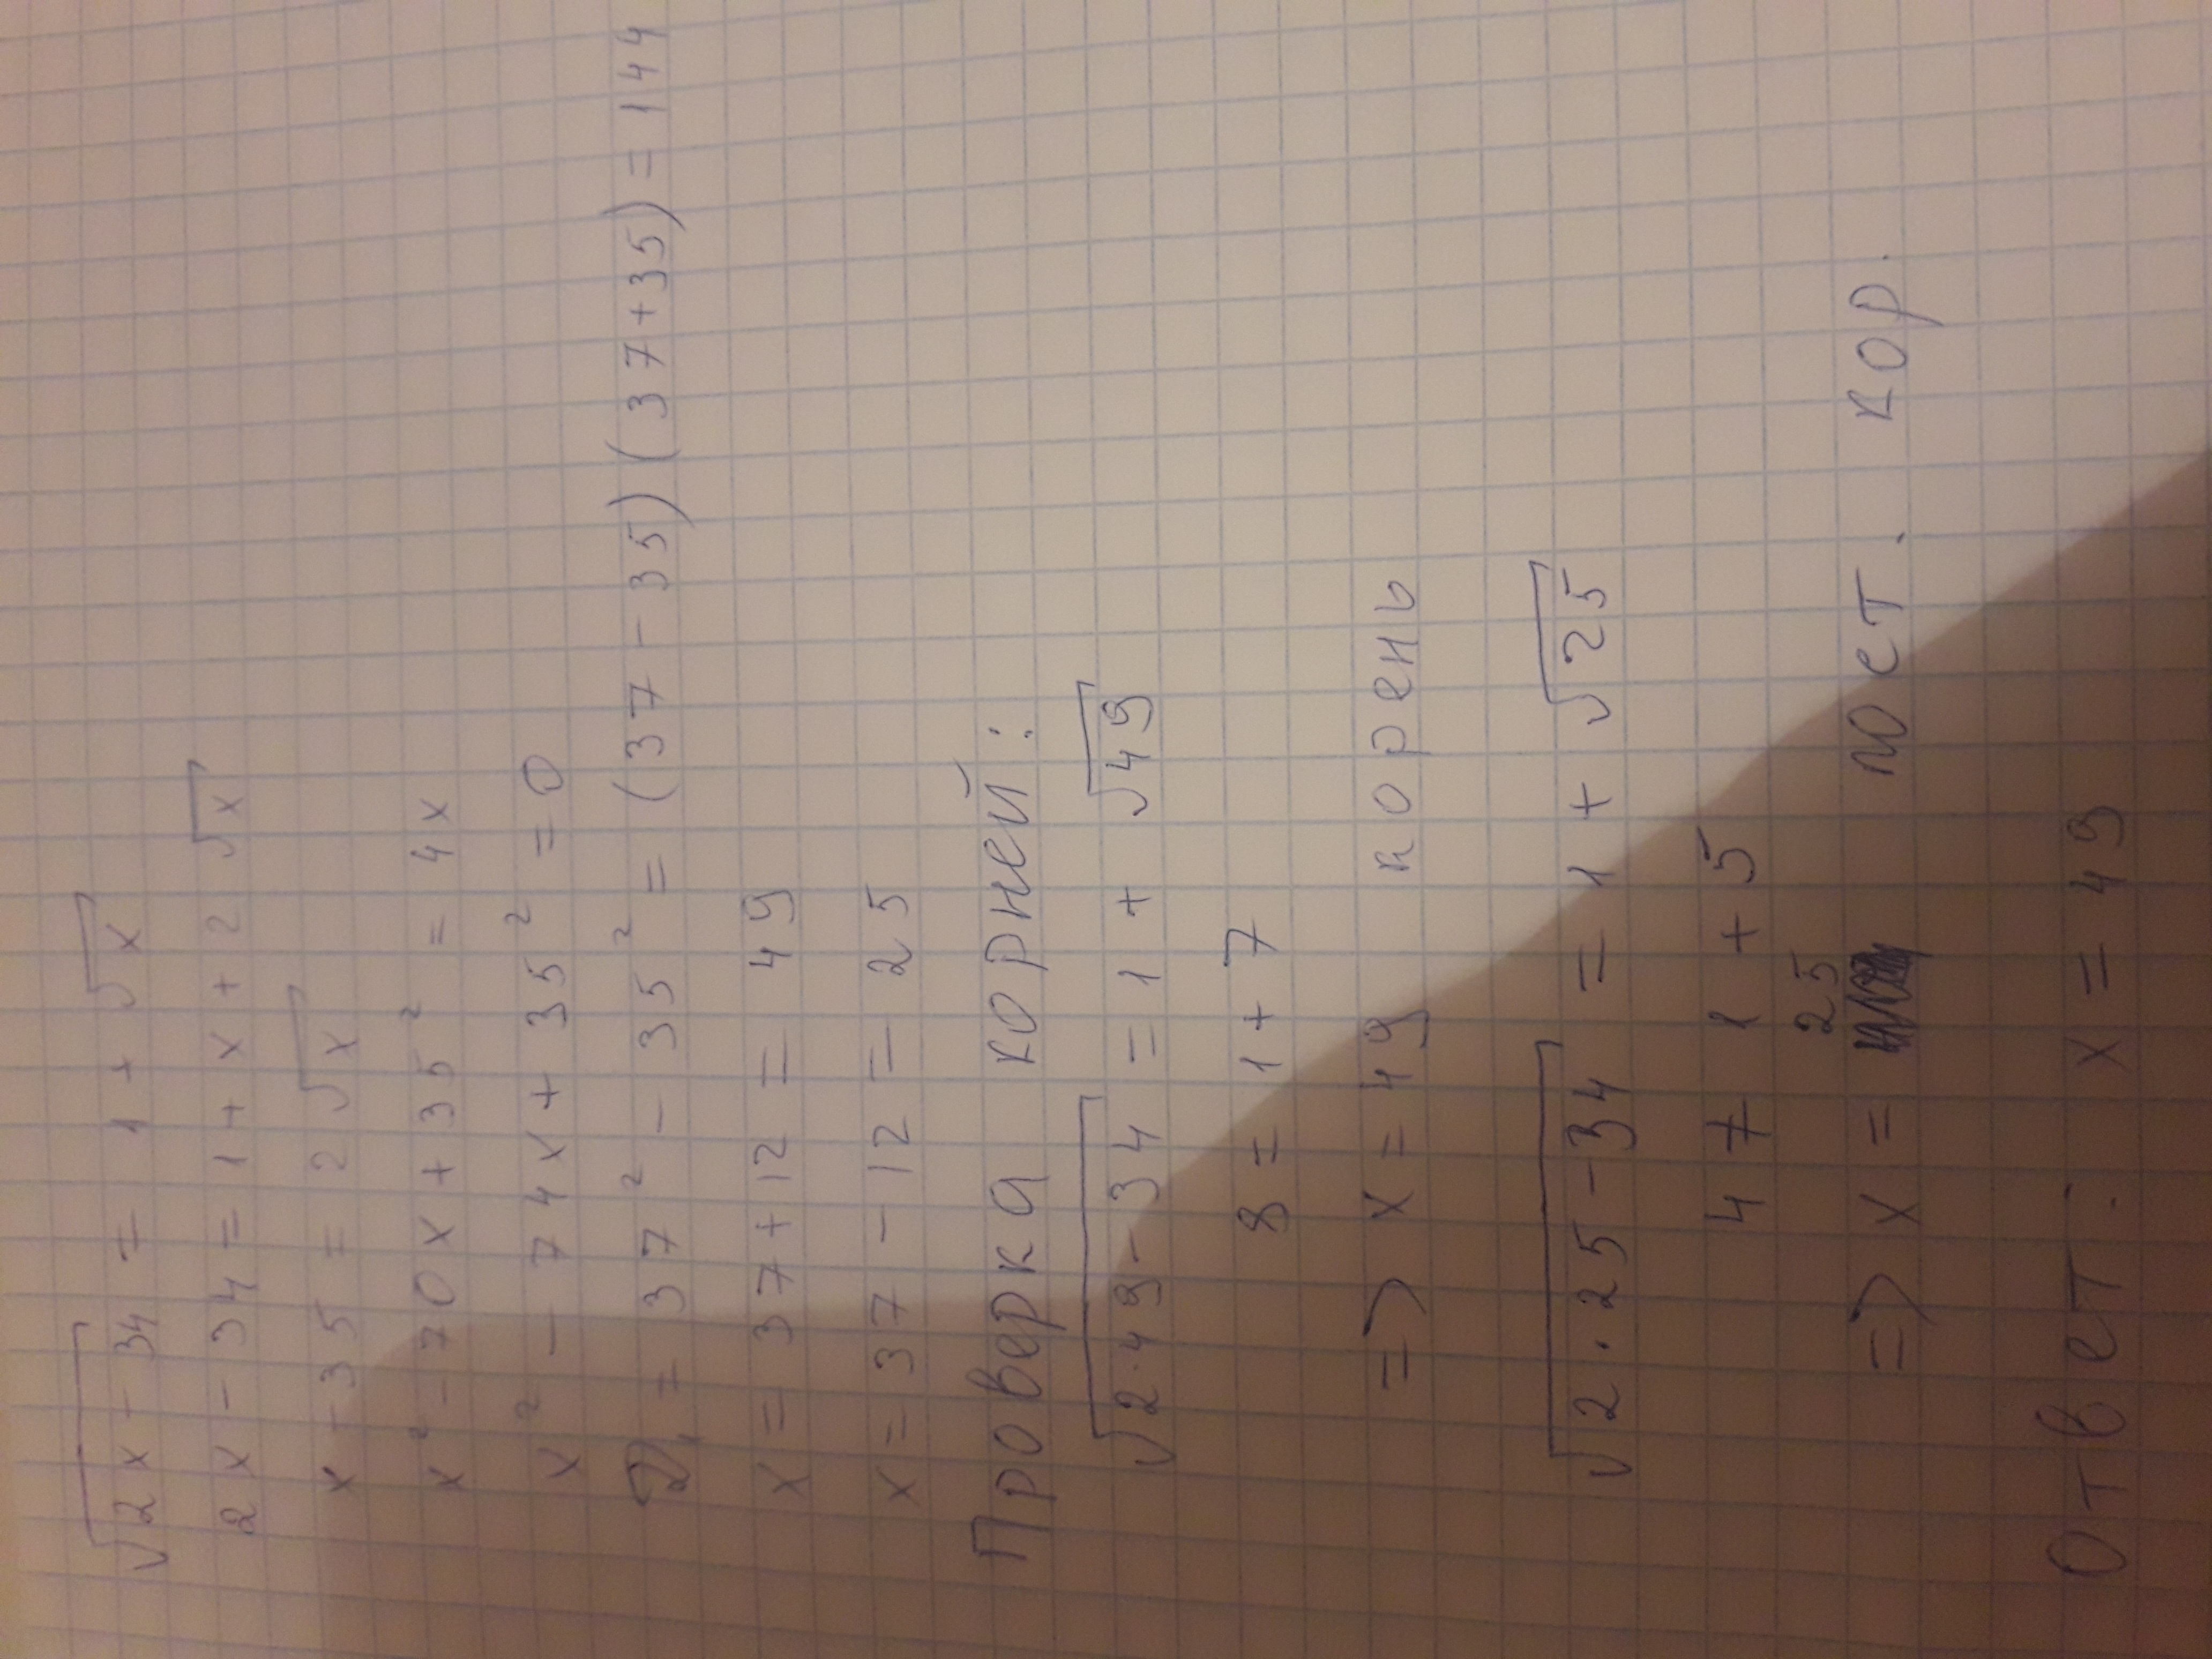 √2x - 34 = 1 + √x
2x - 34 = 1 + x + 2√x
x - 35 = 2√x
x² - 70x + 35² = 4x
x² - 74x + 35² = 0
D₁ = 37² - 35² = (37 - 35)(37+35) = 144
x = 37+12 = 49
x = 37 - 12 = 25
Проверка корней:
√2·49-34 = 1 + √49
8 = 1 + 7
=> x = 49 корень
√2·25-34 = 1 + √25
4 ≠ 1 + 5
=> x = 25 пост. кор.
Ответ: x = 49